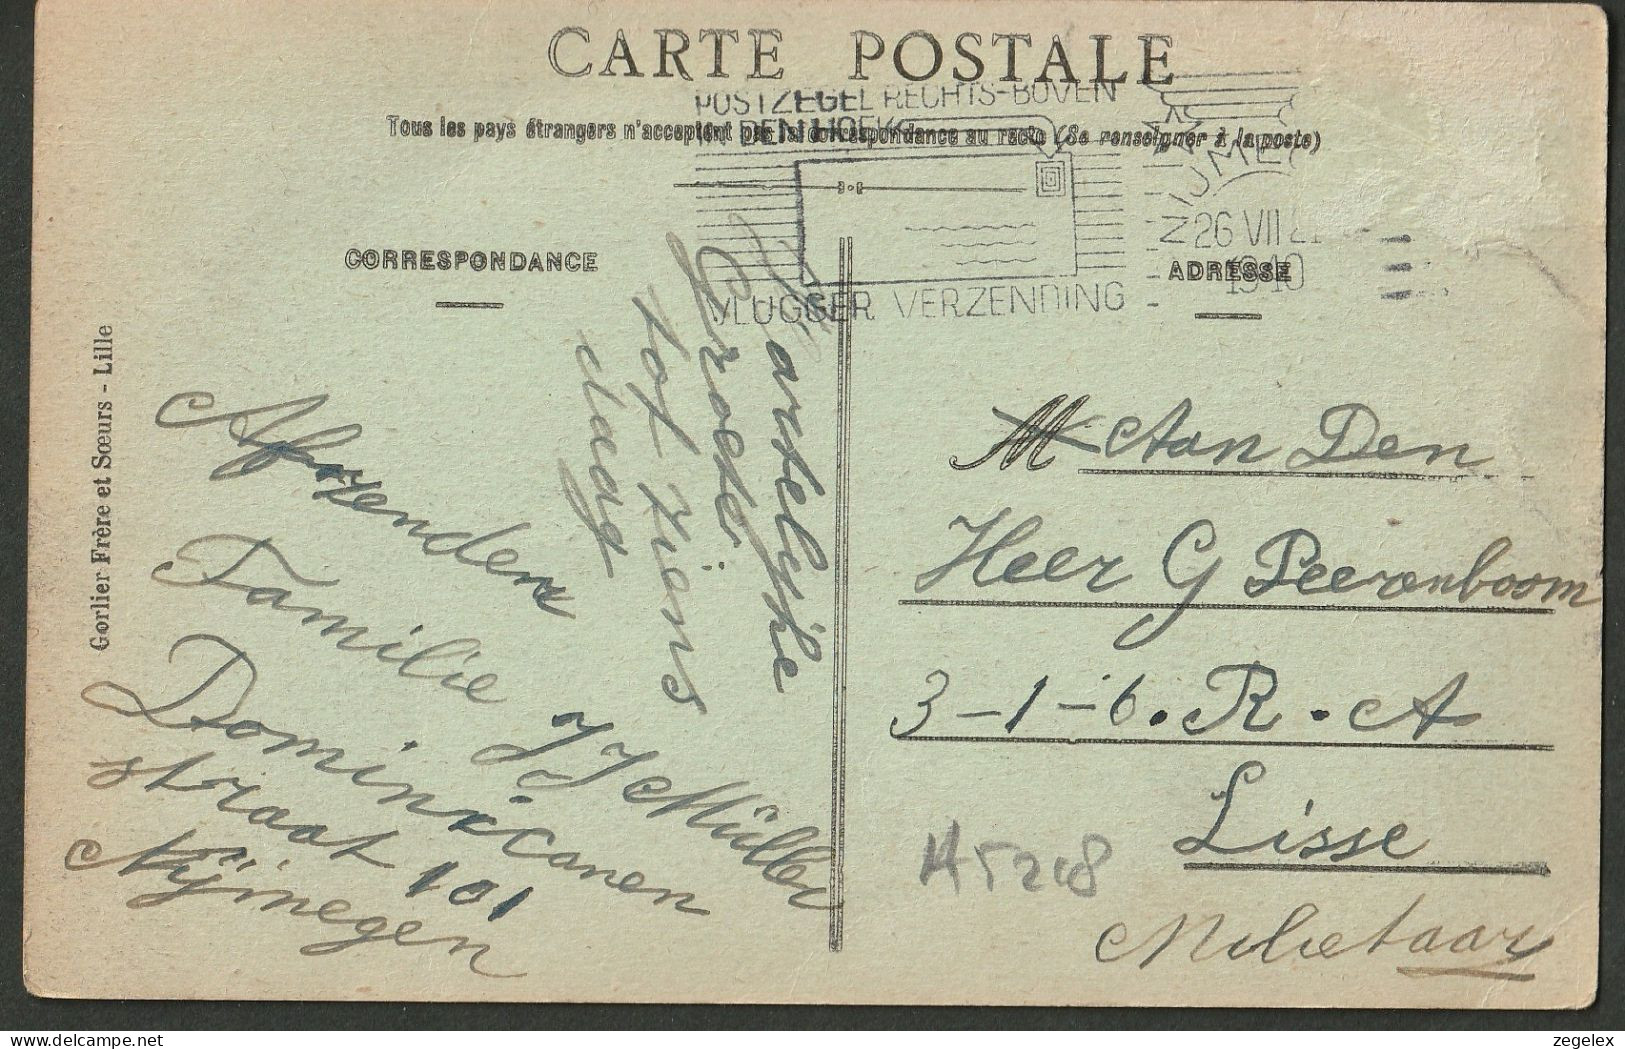 CARTE POSTALE
POSTZEGEL RECHTS-BOVEN
Tous les pays étrangers n'acceptent pas la correspondance au recto (Se renseigner à la poste)
NIJMEG
26 VII 2
19-10
VLUGGER VERZENDING
CORRESPONDANCE
ADRESSE
Gorlier Frère et Sœurs - Lille
Hartelijke
Groete
tot ziens
daag
Afzender
Familie
J J Müller
Dominicanen
straat 101
Nijmegen
M Aan Den
Heer G Peerenboom
3-1-6. R. A
Lisse
Milietaar
H5218
zegelex